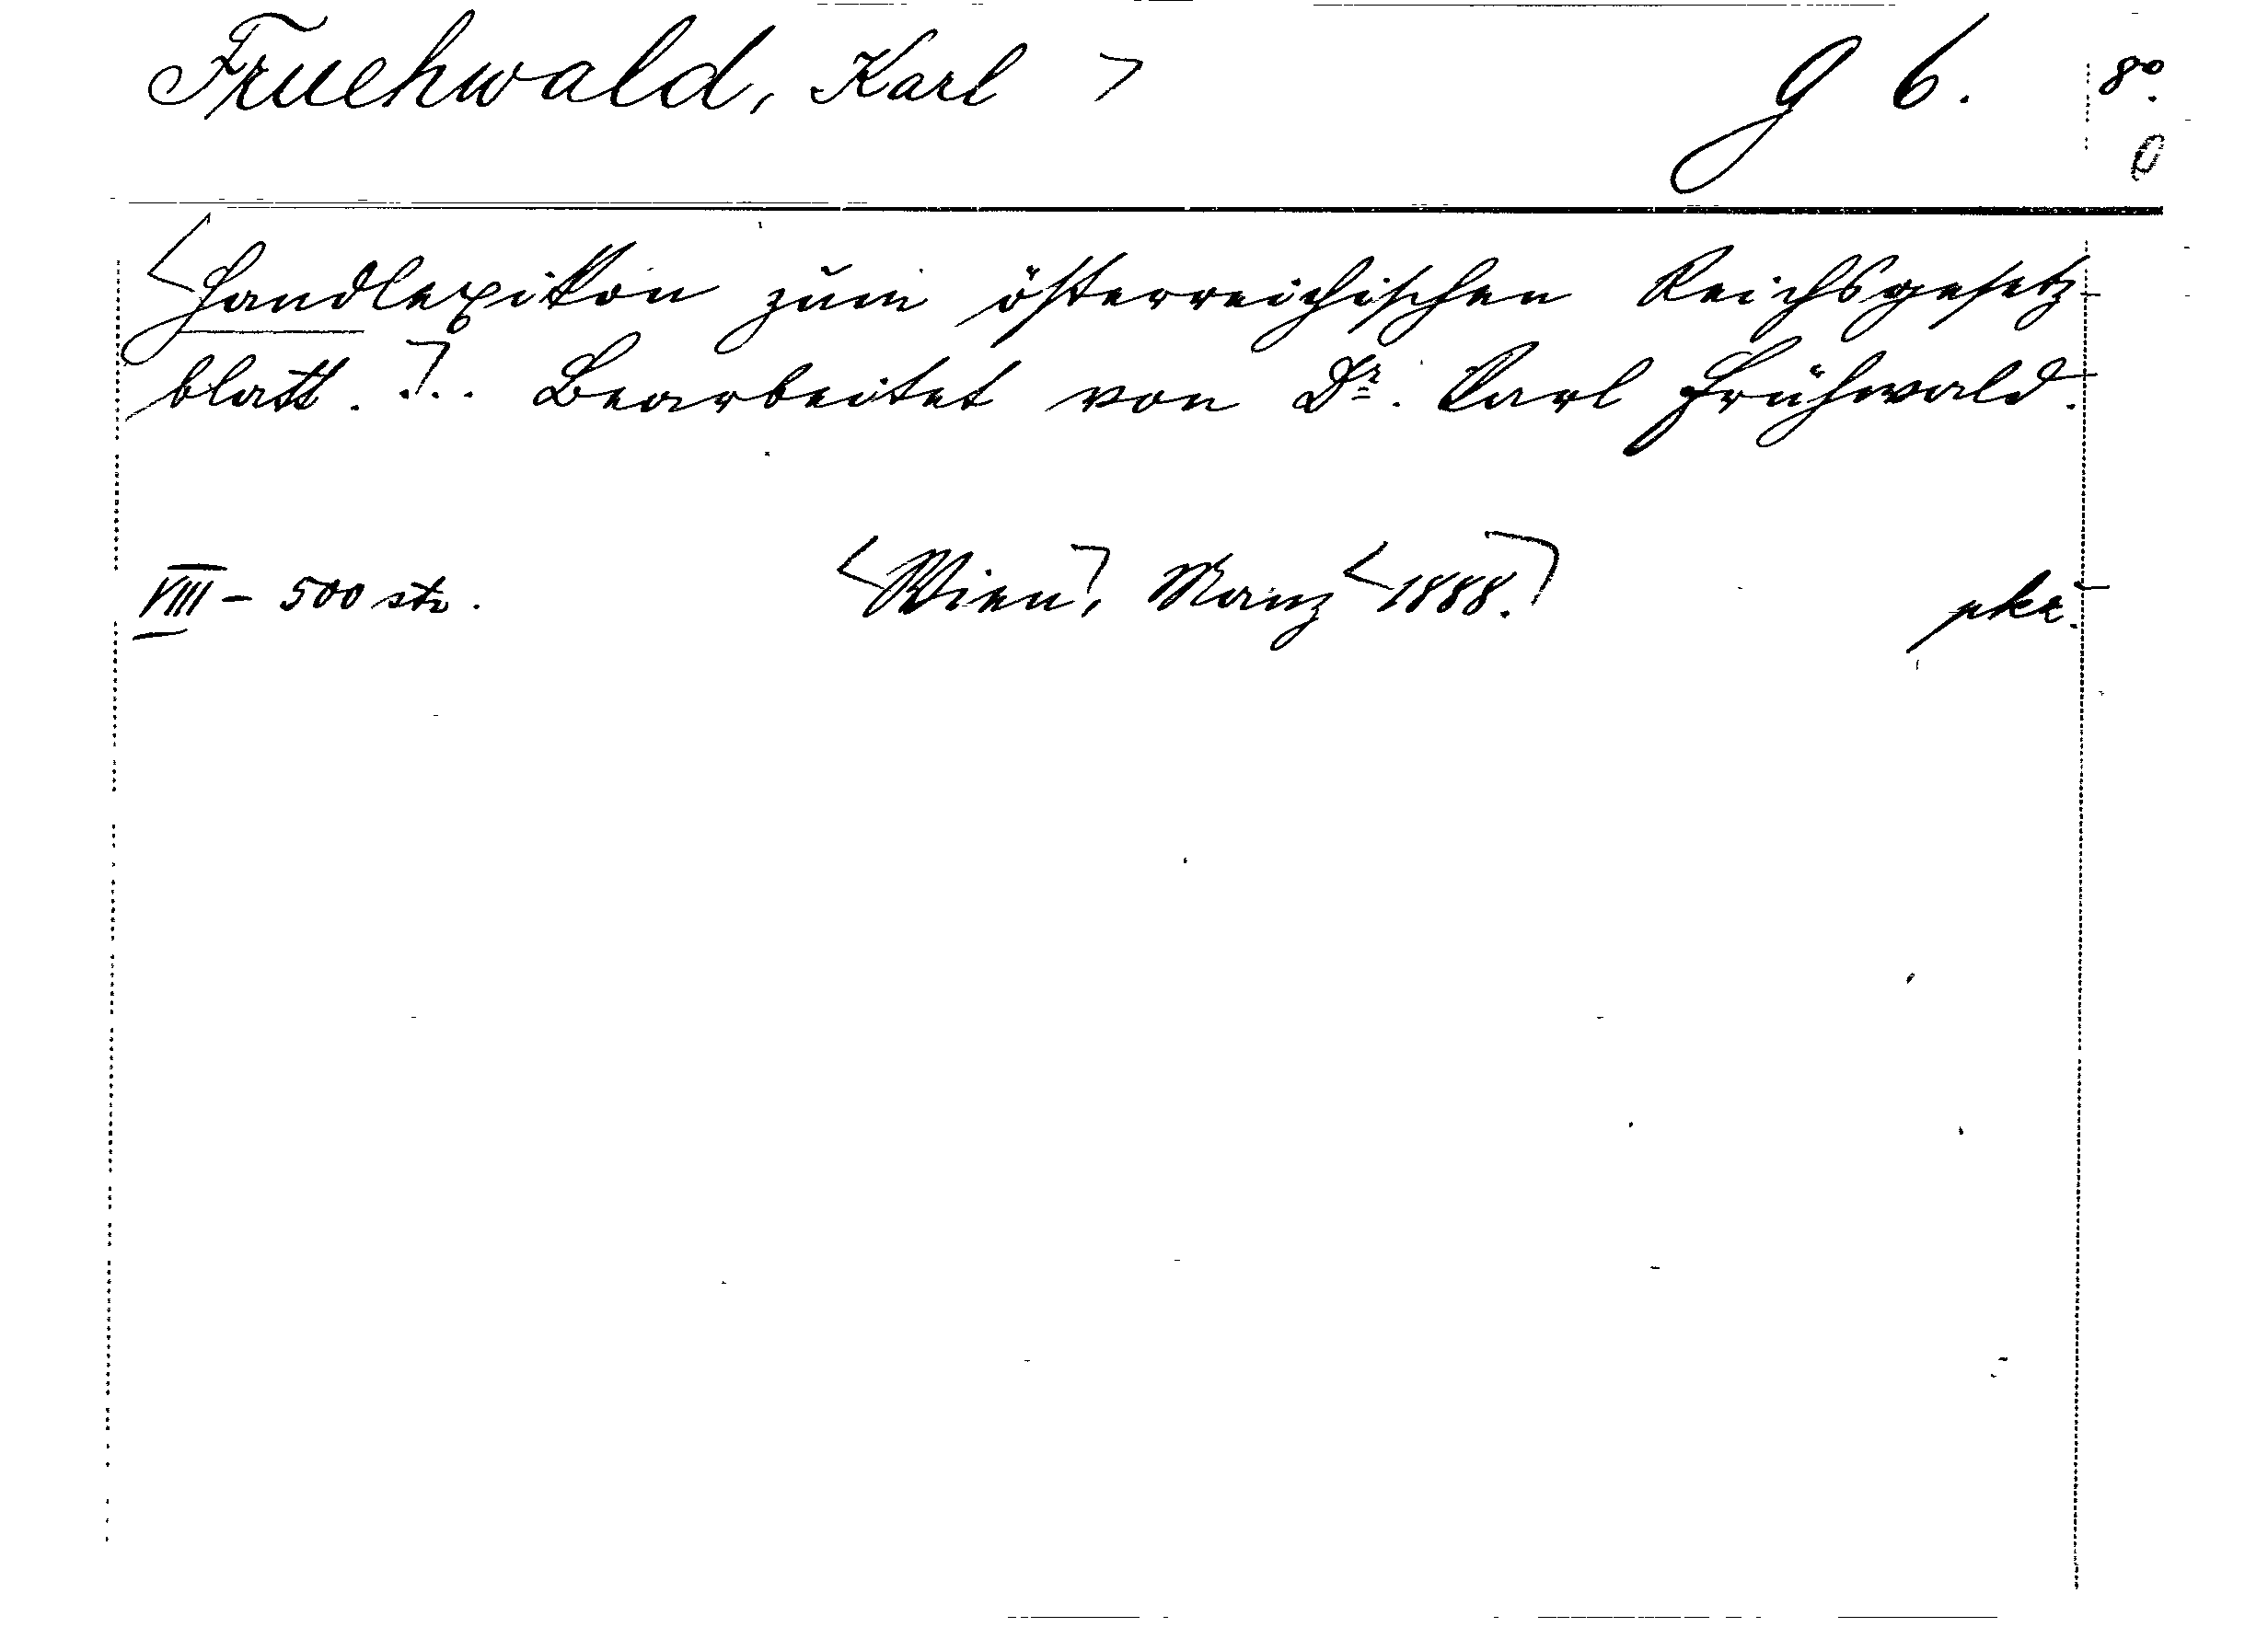 Fruehwald, Karl > g 6. 8°.
<Handlexikon zum österreichischen Reichsgesetz-
blatt.>... Bearbeitet von Dr. Karl Frühwald.
VIII - 500 str. <Wien>, Manz <1888.>